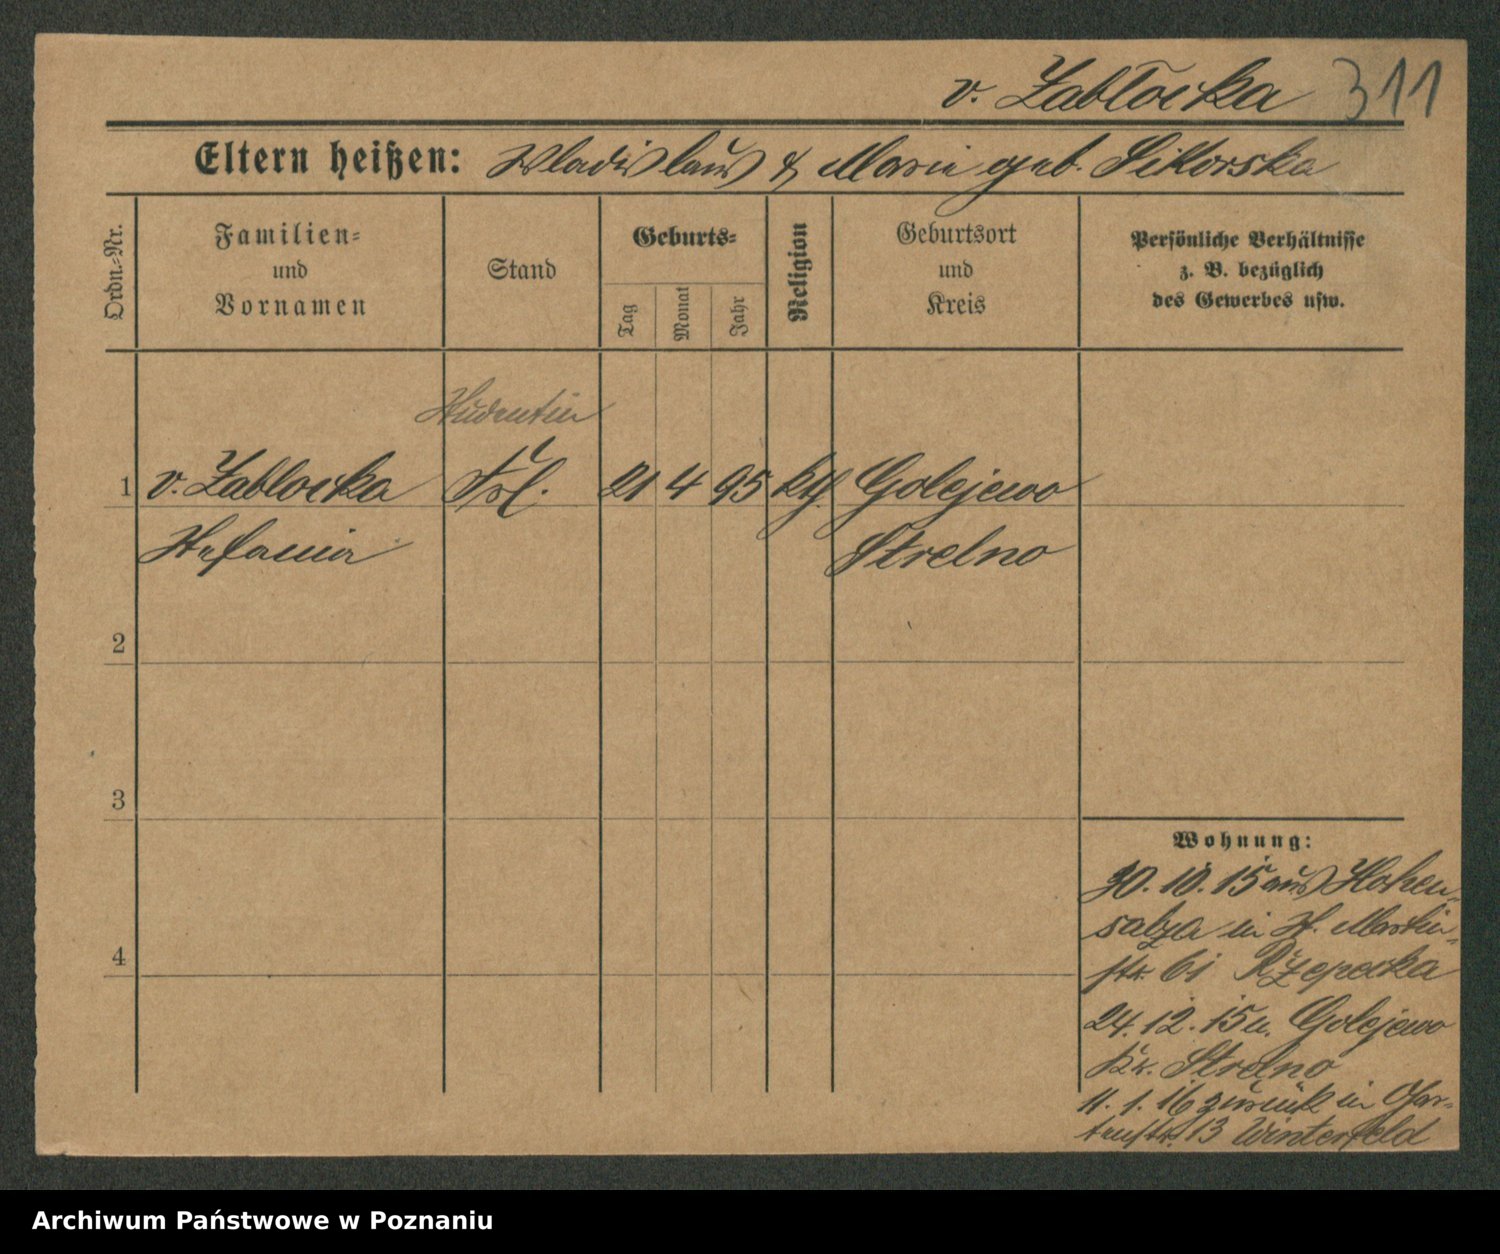 v. Zabłocka 311
Eltern heißen: Wladislaus & Marie geb. Sikorska
Ordn.-Nr.
Familien-
und
Vornamen
Stand
Geburts-
Tag
Monat
Jahr
Religion
Geburtsort
und
Kreis
Persönliche Verhältnisse
z. B. bezüglich
des Gewerbes usw.
Studentin
1 v. Zablocka Frl. 21 4 95 kth. Golejewo
Stefania Strelno
2
3
4
Wohnung:
30. 10. 15 aus Hohen-
salza in St. Martin-
str. 61 Rzepecka
24. 12. 15 n. Golejewo
Kr. Strelno
11. 1. 16 zurück in Gar-
tenstr. 13 Winterfeld
Archiwum Państwowe w Poznaniu